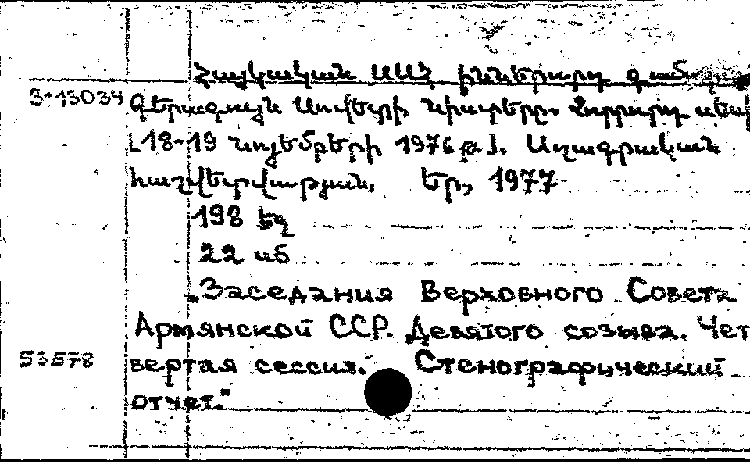 Հայկական ՍՍՀ իններորդ գում.
3-13034 Գերագույն Սովետի նիստերը. Չորրորդ սես
[18-19 նոյեմբերի 1976 թ.]. Սղագրական
հաշվետվություն. Եր., 1977
198 էջ
22 սմ
„Заседания Верховного Совета
Армянской ССР. Девятого созыва. Чет
53578 вертая сессия. Стенографический
отчет."